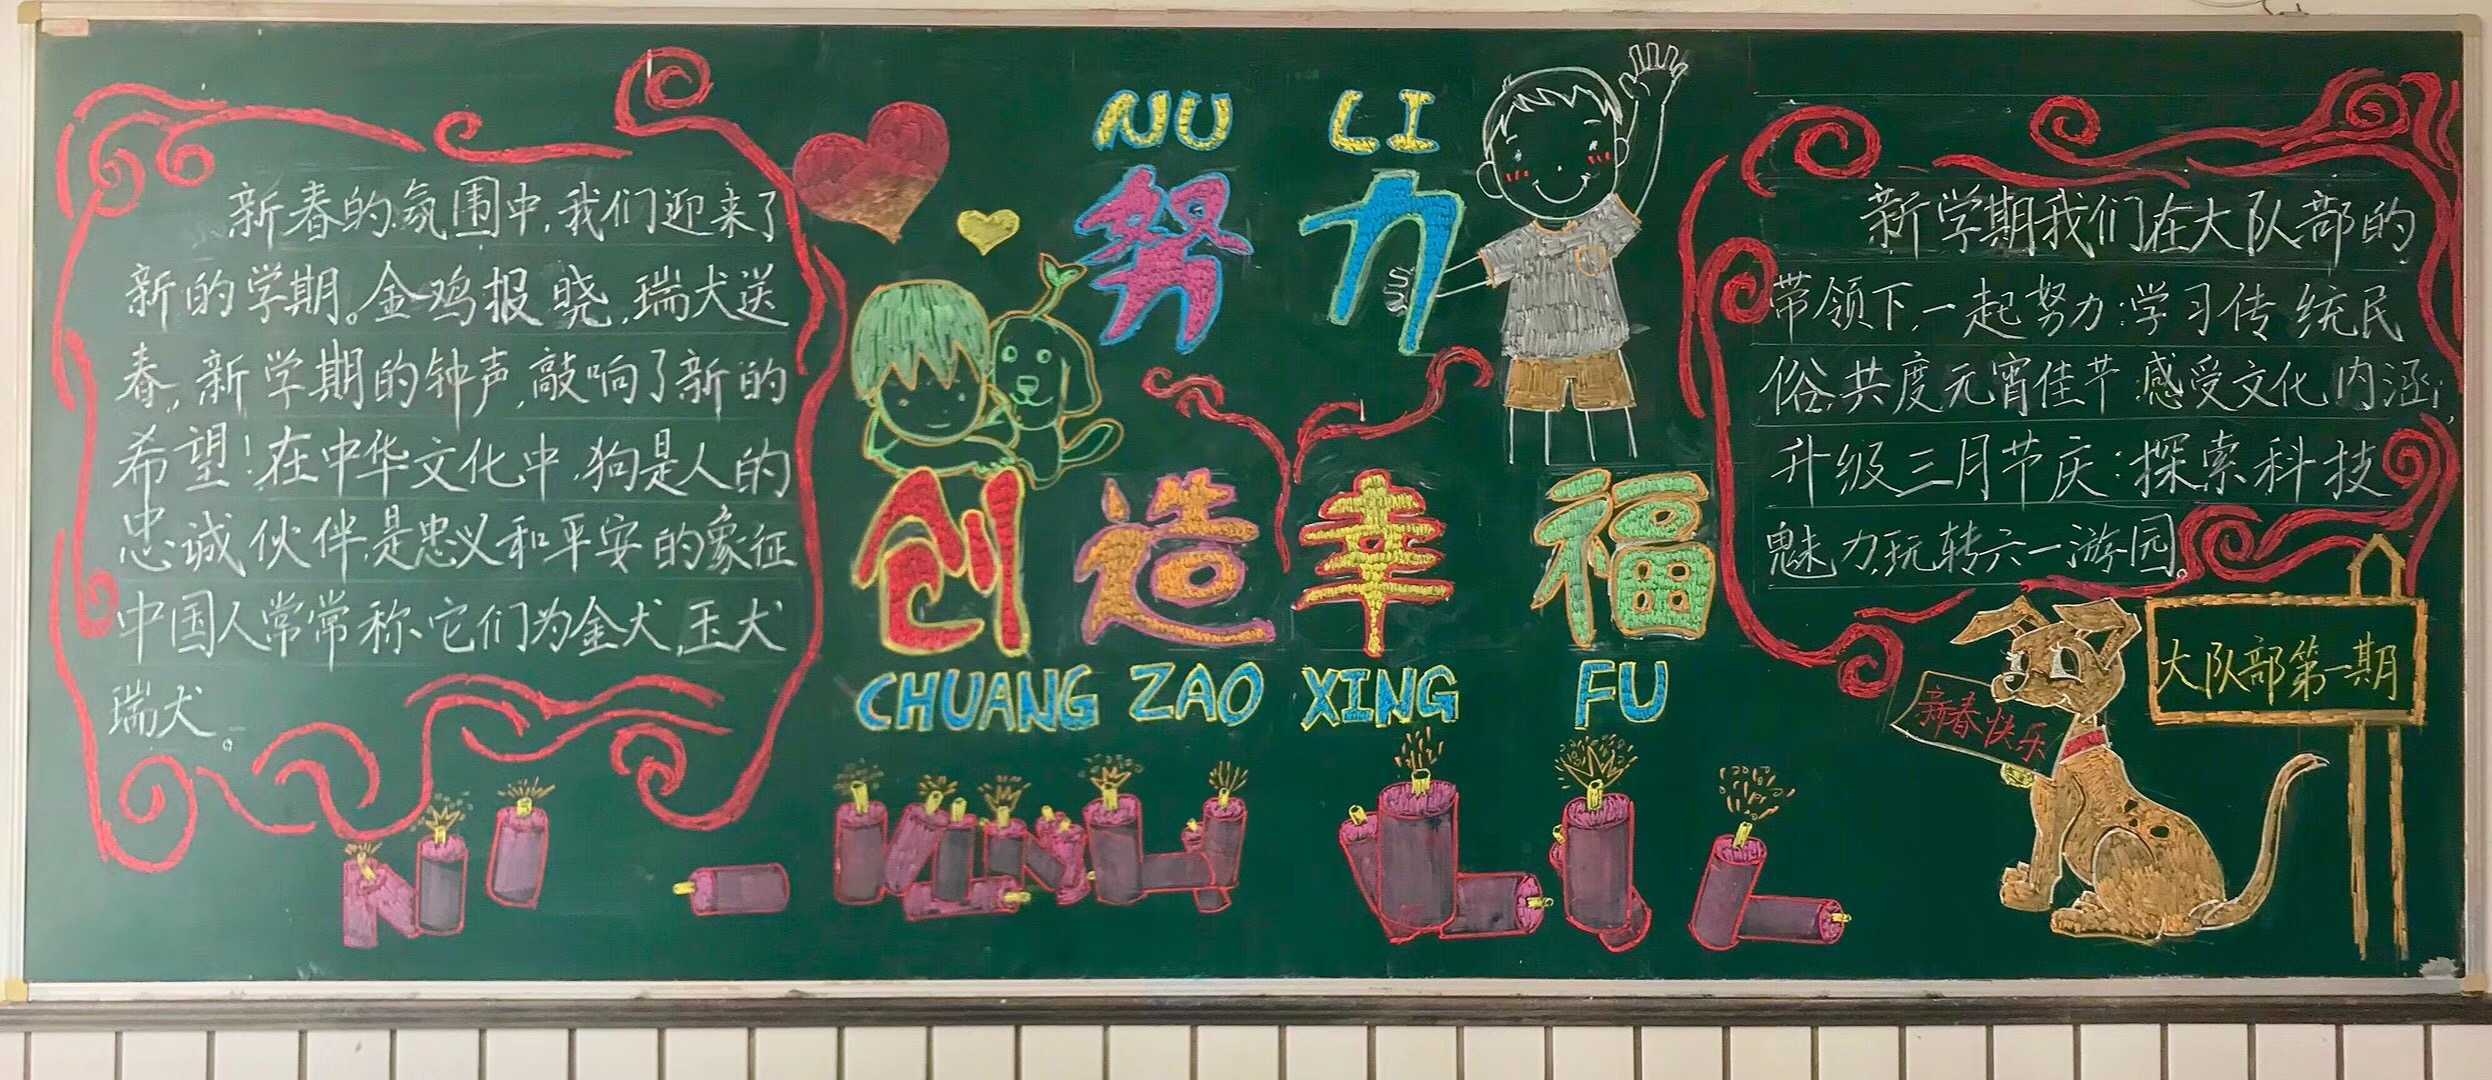 新春的氛围中,我们迎来了
新的学期。金鸡报晓,瑞犬送
春,新学期的钟声,敲响了新的
希望!在中华文化中,狗是人的
忠诚伙伴,是忠义和平安的象征
中国人常常称它们为金犬,玉犬
瑞犬。
NU LI
努力
创造幸福
CHUANG ZAO XING FU
新学期我们在大队部的
带领下,一起努力:学习传统民
俗,共度元宵佳节,感受文化内涵;
升级三月节庆:探索科技
魅力,玩转六一游园。
新春快乐
大队部第一期